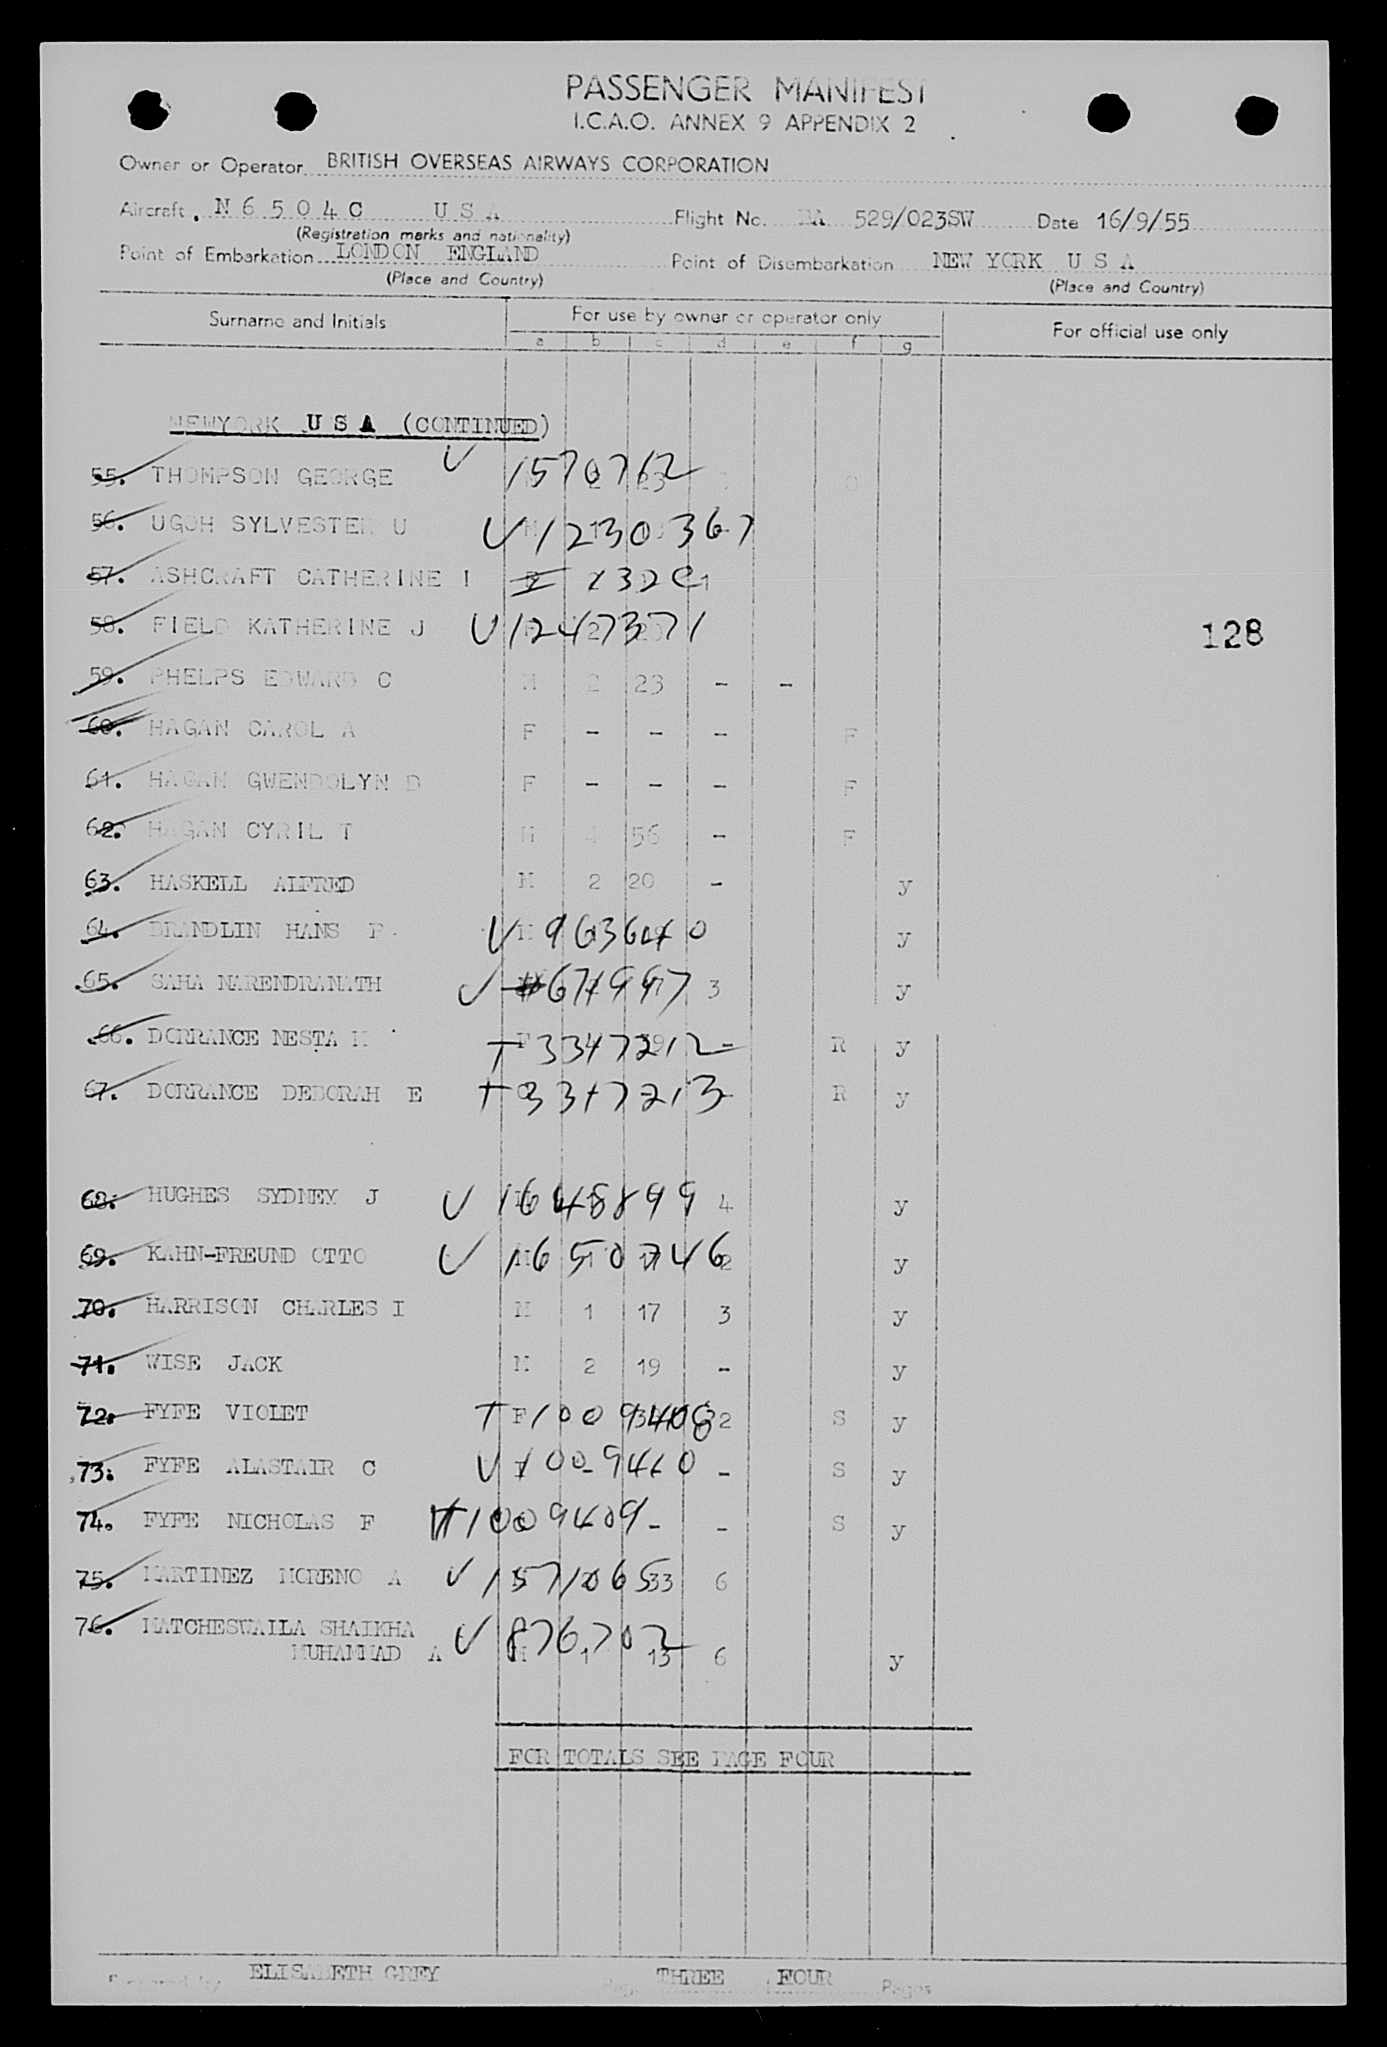 PASSENGER MANIFEST
I.C.A.O. ANNEX 9 APPENDIX 2
Owner or Operator BRITISH OVERSEAS AIRWAYS CORPORATION
Aircraft N6504C USA Flight No. BA 529/023SW Date 16/9/55
(Registration marks and nationality)
Point of Embarkation LONDON ENGLAND Point of Disembarkation NEW YORK U S A
(Place and Country) (Place and Country)
Surname and Initials For use by owner or operator only For official use only
a b c d e f g
NEWYORK U S A (CONTINUED)
55. THOMPSON GEORGE V 1570762 O
56. UGOH SYLVESTER U V 1230367
57. ASHCRAFT CATHERINE I
58. FIELD KATHERINE J V 12473371
128
59. PHELPS EDWARD C M 2 23 - -
60. HAGAN CAROL A F - - - F
61. HAGAN GWENDOLYN D F - - - F
62. HAGAN CYRIL T M 4 56 - F
63. HASKELL ALFRED M 2 20 - y
64. BRANDLIN HANS F V 9636440 y
65. SAHA NARENDRANATH V 674997 3 y
66. DORRANCE NESTA M T 3347212 - R y
67. DORRANCE DEBORAH E T 3347213 - R y
68. HUGHES SYDNEY J V 1648899 4 y
69. KAHN-FREUND OTTO V 1650746 2 y
70. HARRISON CHARLES I M 1 17 3 y
71. WISE JACK M 2 19 - y
72. FYFE VIOLET T F 1009408 2 S y
73. FYFE ALASTAIR C V 1009410 - S y
74. FYFE NICHOLAS F 1009409 - - S y
75. MARTINEZ MORENO A V 1571065 33 6
76. MATCHESWAILA SHAIKHA V 876702
MUHAMMAD A M 1 13 6 y
FOR TOTALS SEE PAGE FOUR
Prepared by ELISABETH GREY Page THREE FOUR Pages